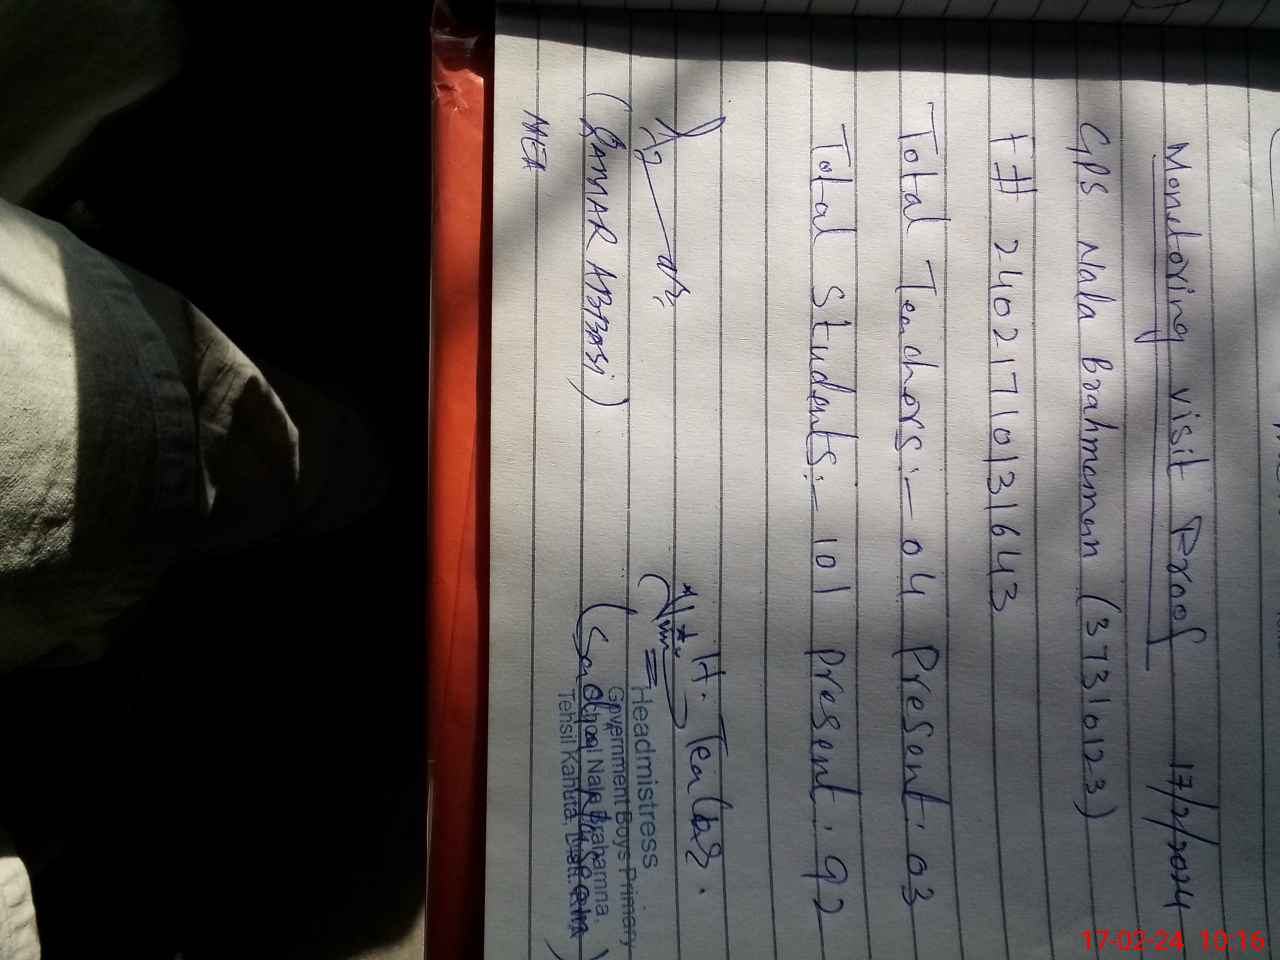 Monetoring visit Proof 17/2/2024
GPS Nala Brahmaman (37310123)
F# 24021710131643
Total Teachors:- 04 Present: 03
Total Students:- 101 Present: 92
H. Teacher.
(QAMAR ABBASi)
MEA
Headmistress
Government Boys Primary
School Nala Brahamna.
Tehsil Kahuta,
17-02-24 10:16